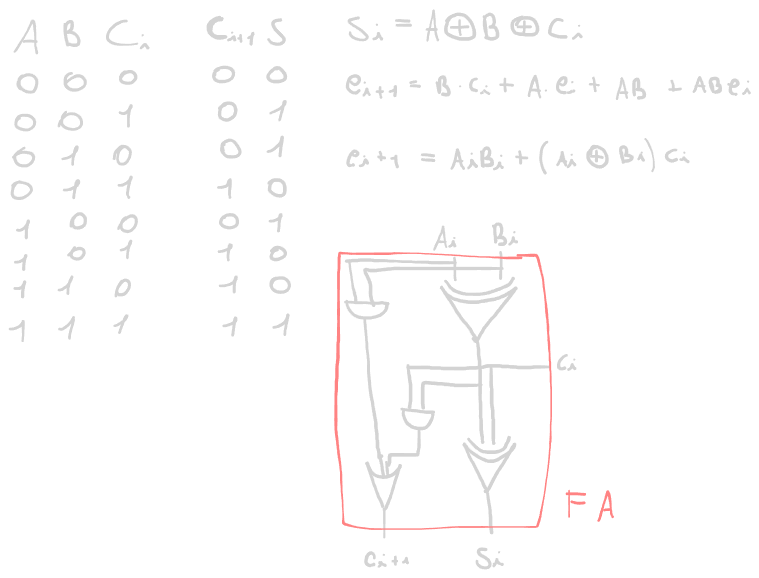 A B Ci Ci+1 S
0 0 0 0 0
0 0 1 0 1
0 1 0 0 1
0 1 1 1 0
1 0 0 0 1
1 0 1 1 0
1 1 0 1 0
1 1 1 1 1
Si = A ⊕ B ⊕ Ci
Ci+1 = B · Ci + A · Ci + AB + ABCi
Ci+1 = AiBi + (Ai ⊕ Bi) Ci
Ai Bi
Ci
FA
Ci+1 Si